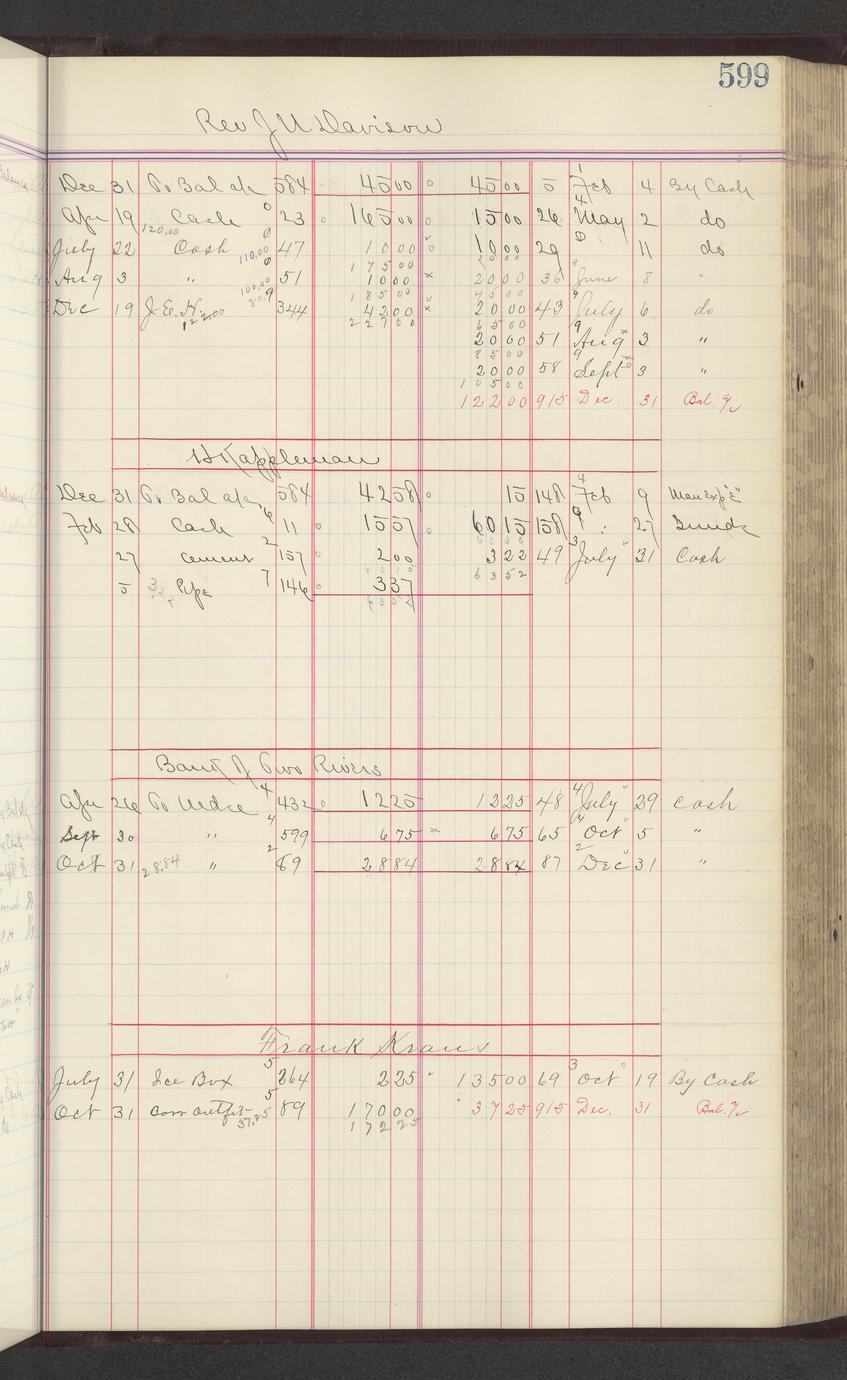 599
Rev J N Davison
Dec 31 To Bal a/c 584 4500 4500 5 Feb 4 By Cash
Apr 19 Cash 23 16500 1500 26 May 2 do
120.00
July 22 Cash 47 1000 1000 29 11 do
110.00 17500
Aug 3 " 51 1000 2000 36 June 8 "
100.00 18500 4500
Dec 19 J.E.H. 344 4200 2000 43 July 6 do
122.00 22700 6500
2000 51 Aug 3 "
8500
2000 58 Sept 3 "
10500
12200 915 Dec. 31 Bal. a/c
H Kappleman
Dec 31 To Bal a/c 584 4258 15 148 Feb 9 Man Exp "E"
Feb 28 Cash 11 1557 6015 158 " 27 Sunds
27 cement 157 200 322 49 July 31 Cash
6352
5 Pipe 146 337
322 6352
Bank of Two Rivers
Apr 26 To Mdse 432 1225 1225 48 July 29 cash
Sept 30 " 599 675 675 65 Oct 5 "
Oct 31 28.84 " 89 2884 2884 87 Dec 31 "
Frank Kraus
July 31 Ice Box 264 225 13500 69 Oct 19 By Cash
Oct 31 Corr outfit 89 17000 3725 915 Dec. 31 Bal. a/c
37.25 17225